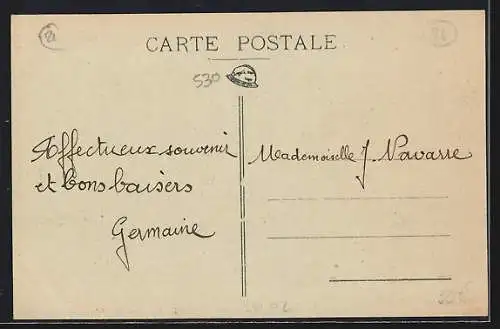 CARTE POSTALE
530
Affectueux souvenir
et bons baisers
Germaine
Mademoiselle J. Navarre